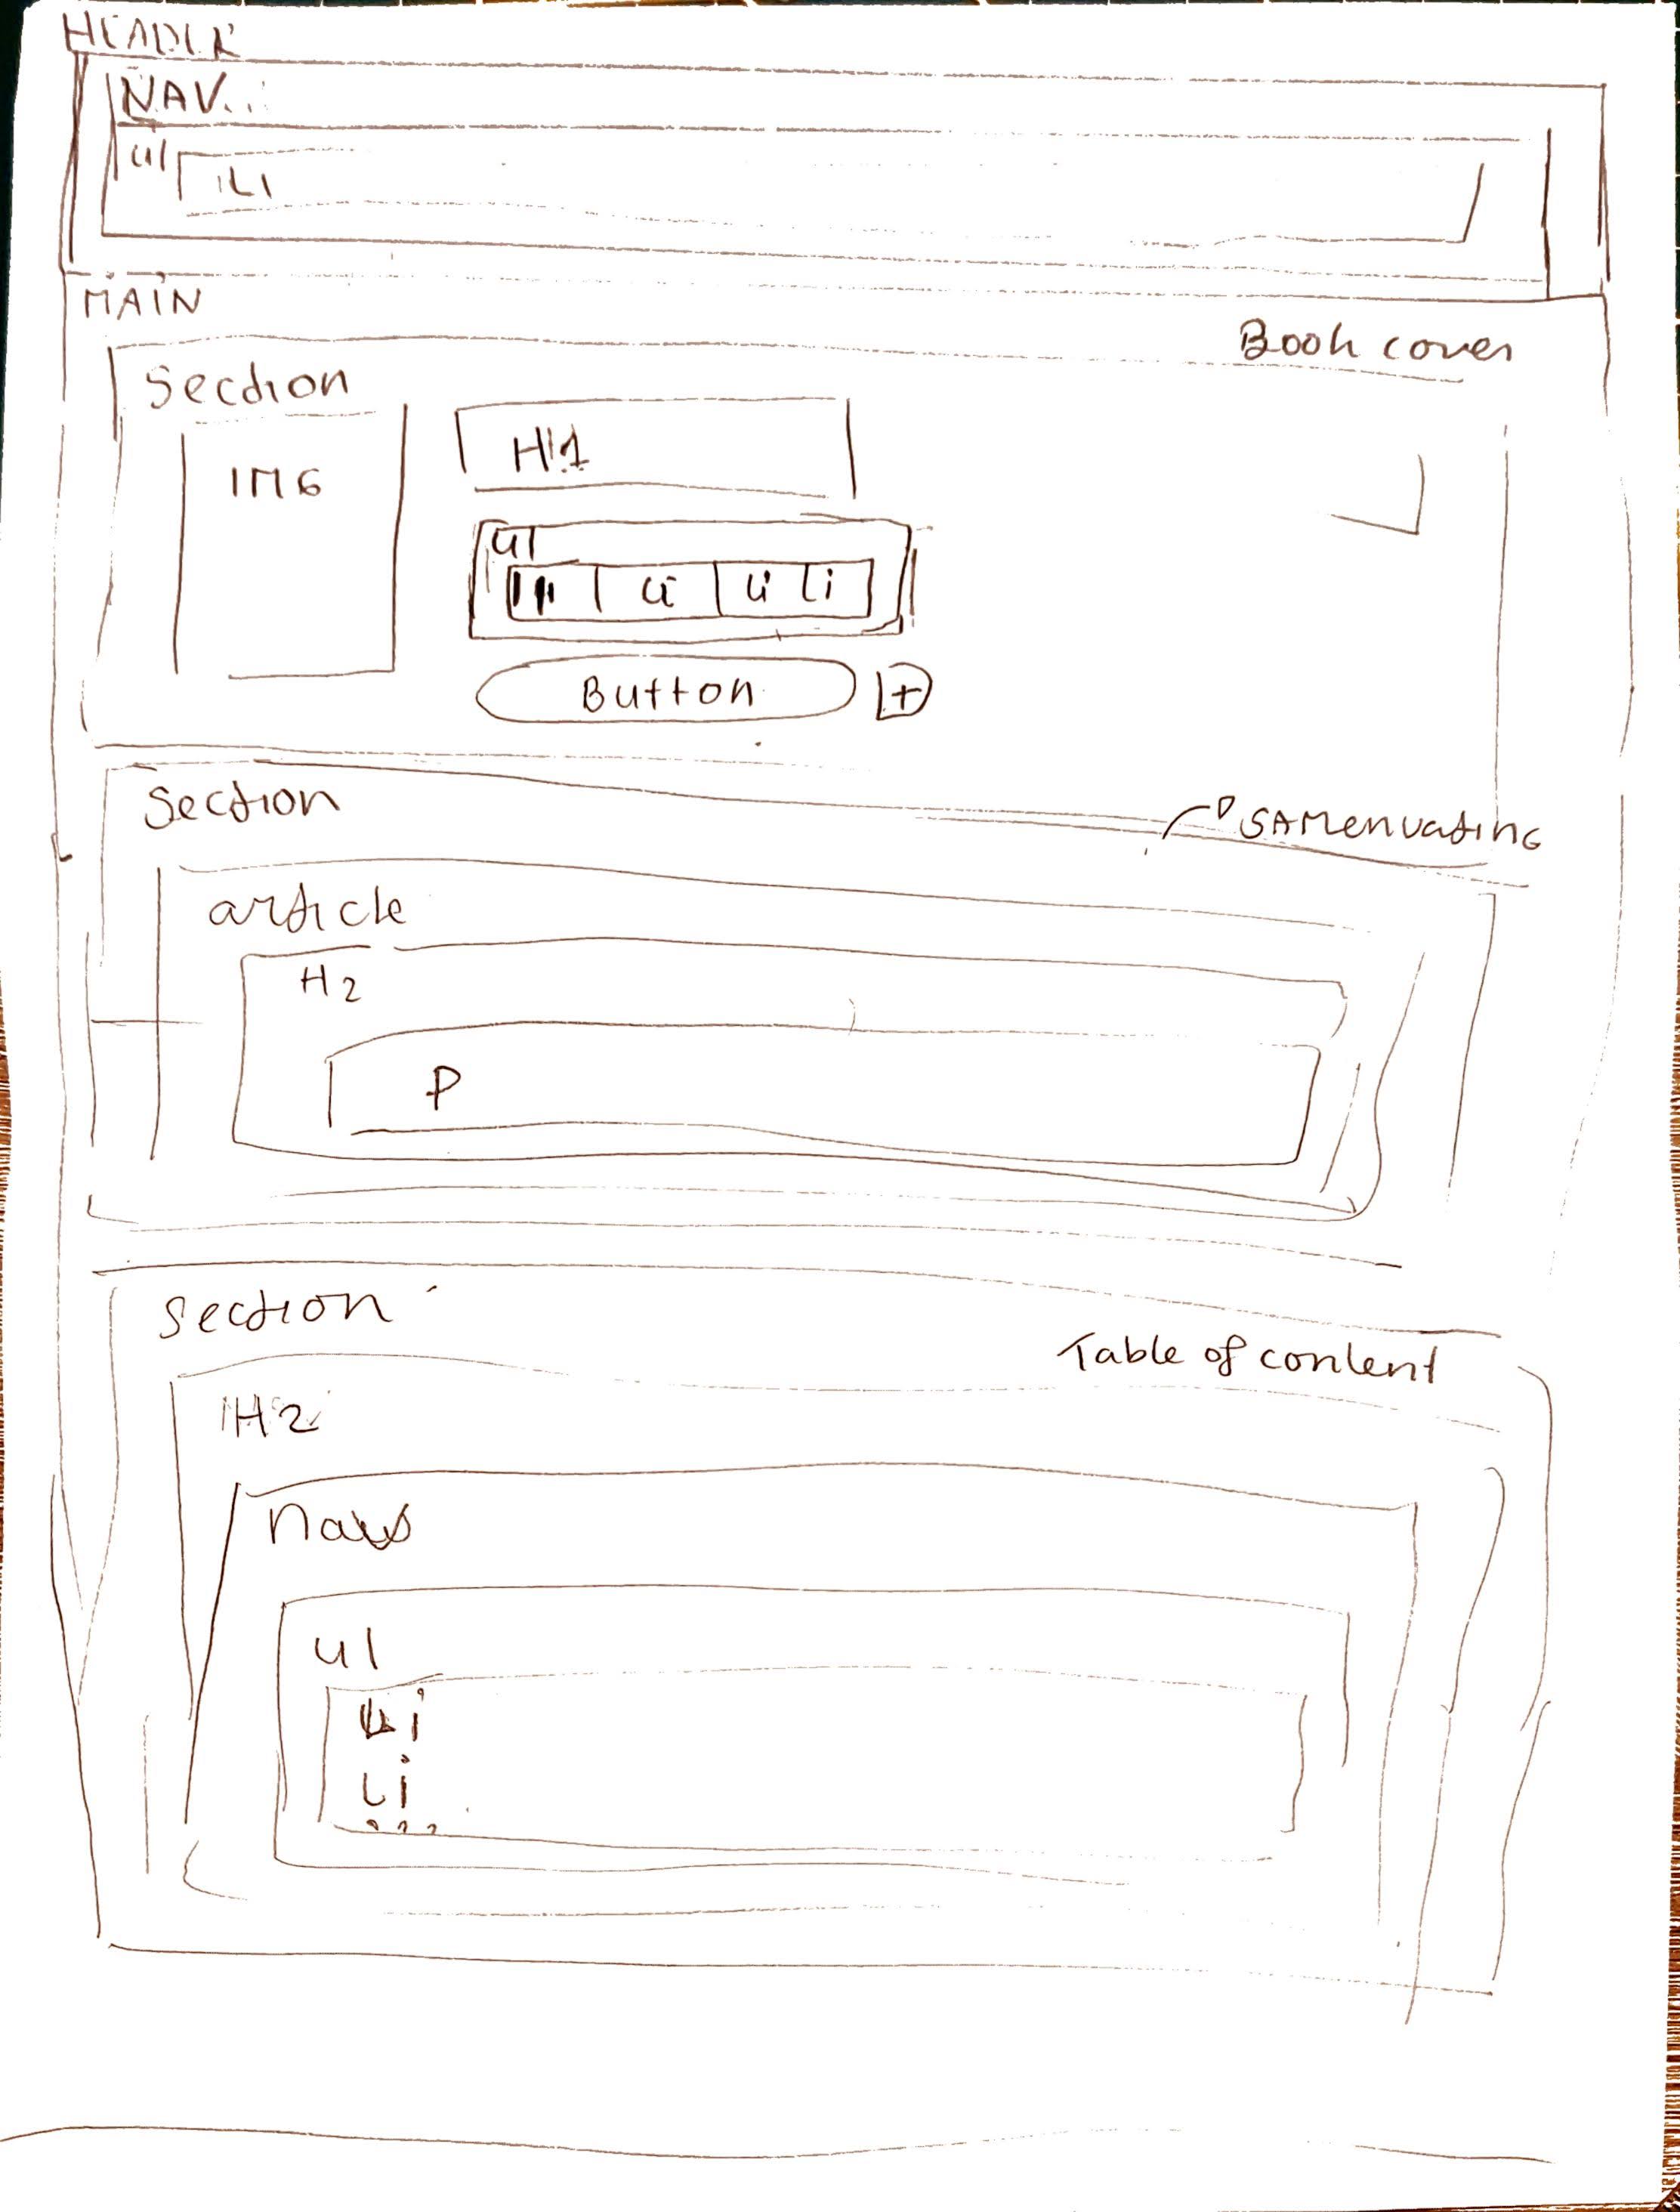 HEADER
NAV...
ul
LI
MAIN
Book cover
Section
IMG
H1
ul
li li li
Button +
Section
SAMENVATING
article
H2
P
Section
Table of content
H2
ul
Li
Li
...